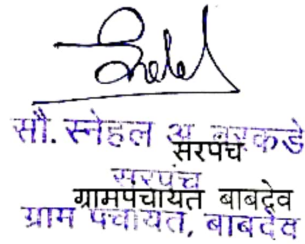 सौ. स्नेहल अ. बरकडे
सरपंच
सरपंच
ग्रामपंचायत बाबदेव
ग्राम पंचायत, बाबदेव